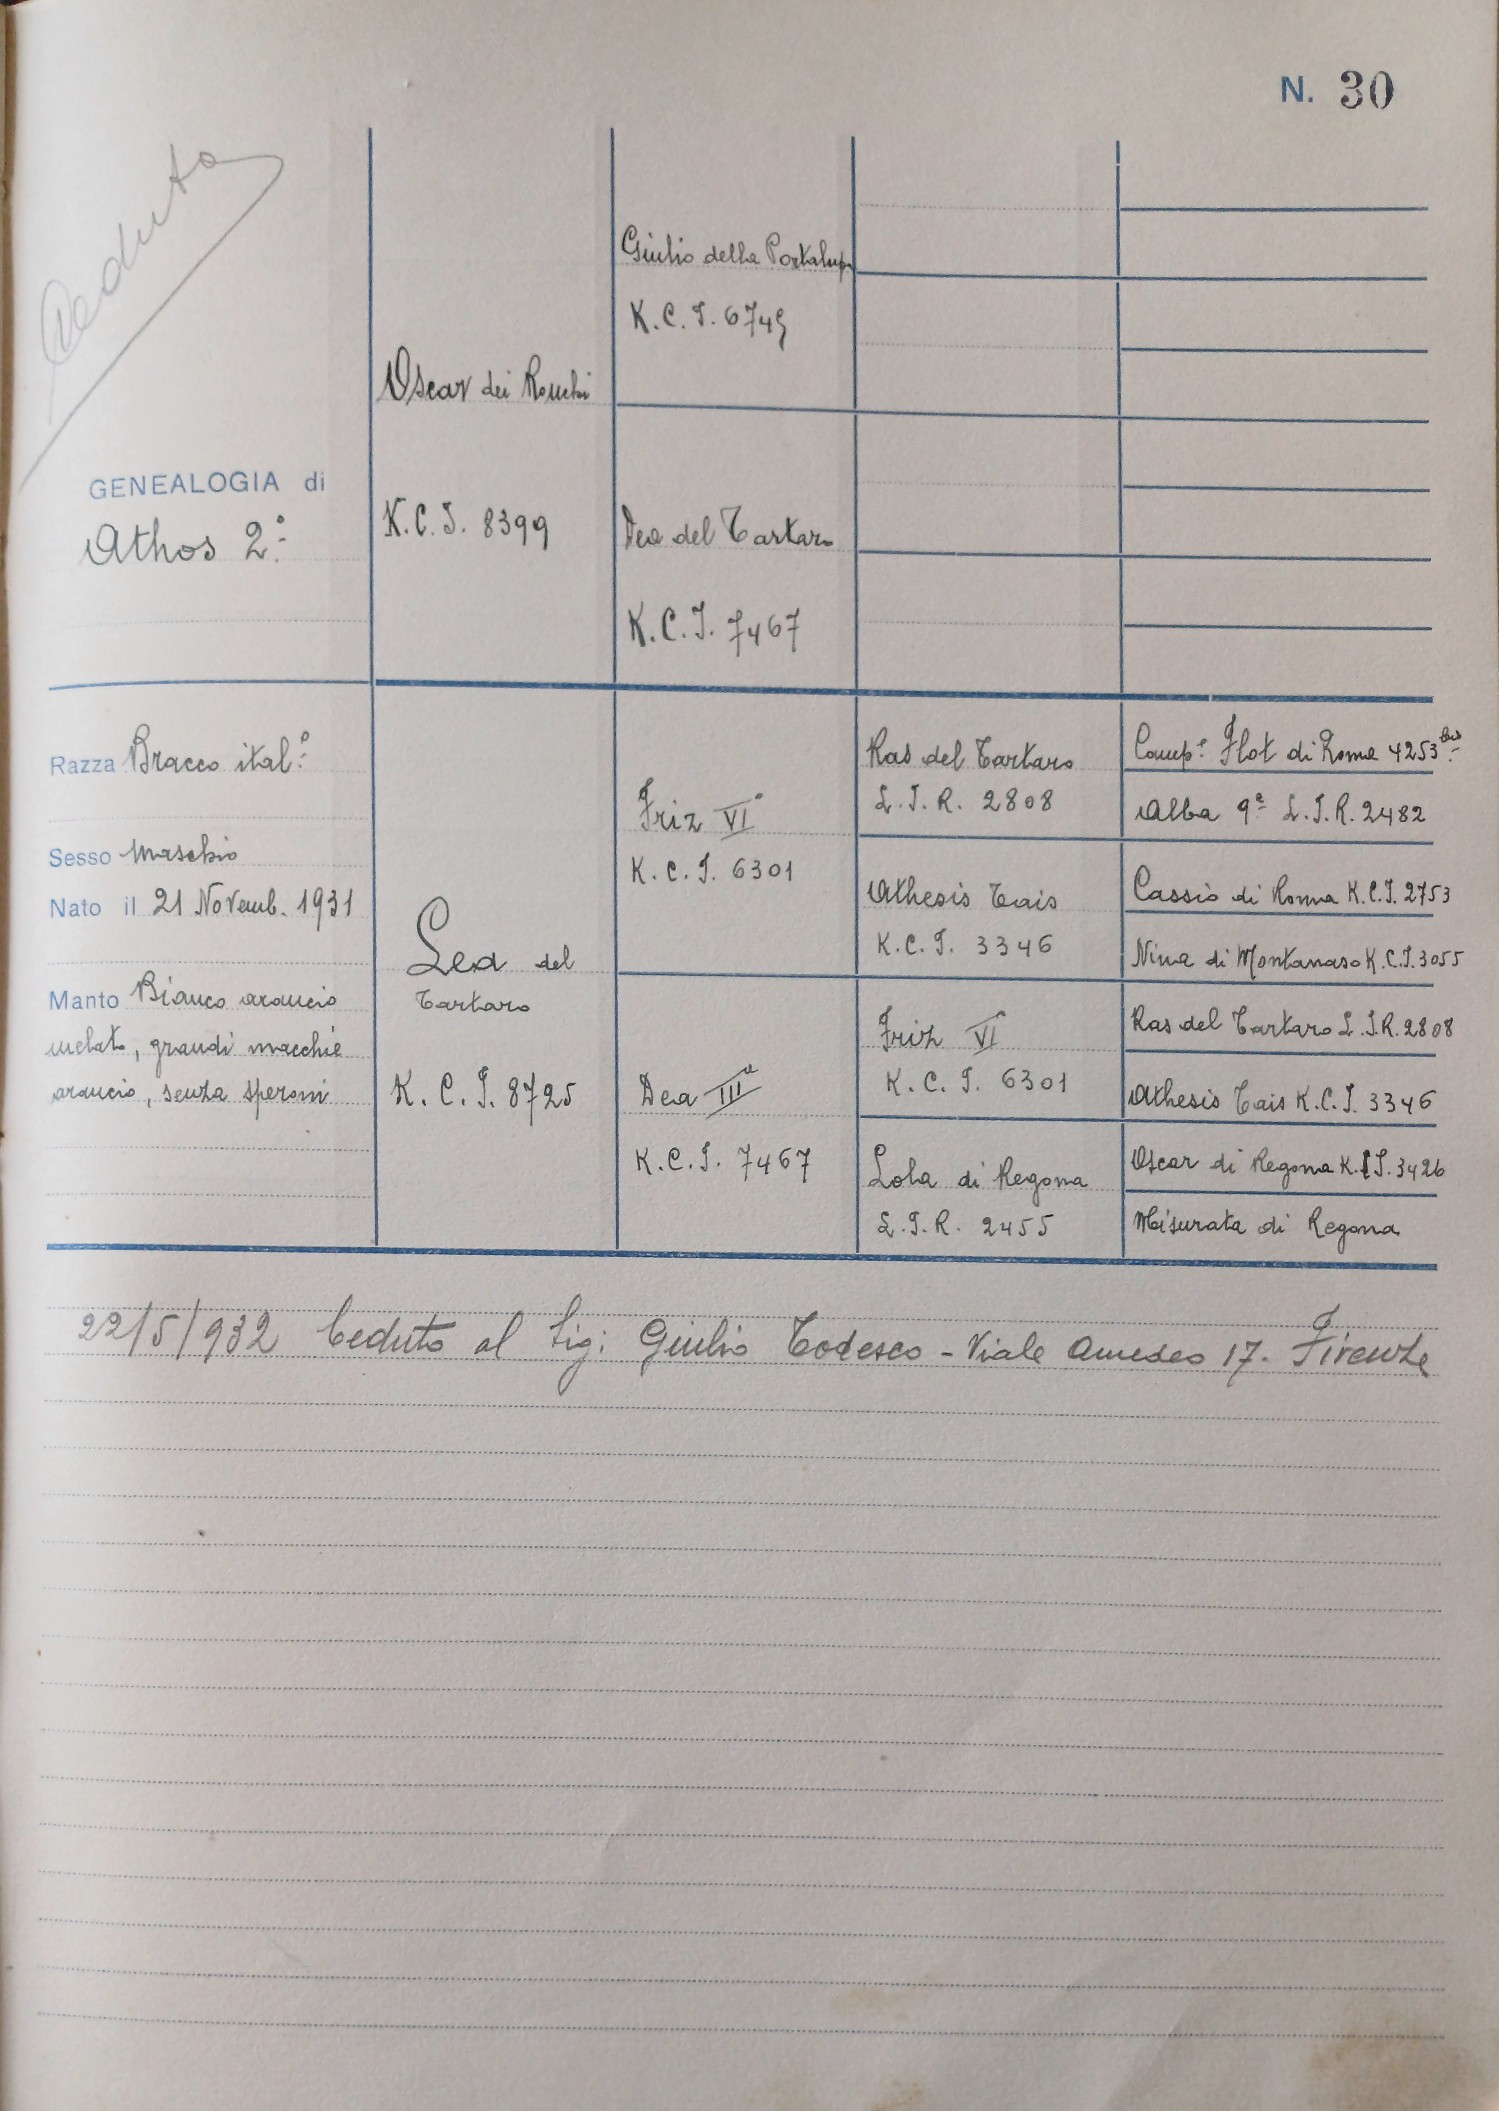 N. 30
Ceduto
GENEALOGIA di
Athos 2°
Oscar dei Ronchi
K.C.I. 8399
Giulio della Portalupa
K.C.I. 6745
Dea del Tartaro
K.C.I. 7467
Razza Bracco ital.º
Sesso Maschio
Nato il 21 Novemb. 1931
Manto Bianco arancio
melato, grandi macchie
arancio, senza speroni
Lea del
Tartaro
K.C.I. 8725
Friz VI°
K.C.I. 6301
Dea IIIª
K.C.I. 7467
Ras del Tartaro
L.I.R. 2808
Athesis Tais
K.C.I. 3346
Friz VI°
K.C.I. 6301
Lola di Regona
L.I.R. 2455
Camp.e Flot di Roma 4253 bis
Alba 9ª L.I.R. 2482
Cassio di Roma K.C.I. 2753
Nina di Montanaso K.C.I. 3055
Ras del Tartaro L.I.R. 2808
Athesis Tais K.C.I. 3346
Oscar di Regona K.C.I. 3426
Misurata di Regona
22/5/932 Ceduto al Sig: Giulio Todesco - Viale Amedeo 17. Firenze